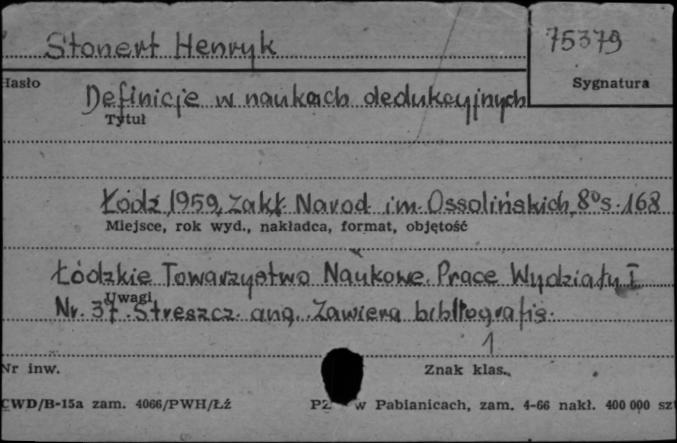 Stonert Henryk
75379
Hasło
Sygnatura
Definicje w naukach dedukcyjnych
Tytuł
Łódź, 1959, Zakł. Narod. im. Ossolińskich, 8° s. 168
Miejsce, rok wyd., nakładca, format, objętość
Łódzkie Towarzystwo Naukowe. Prace Wydziału I
Uwagi
Nr. 37. Streszcz. ang. Zawiera bibliografię.
1
Nr inw.
Znak klas.
CWD/B-15a zam. 4066/PWH/Łź
PZ w Pabianicach, zam. 4-66 nakł. 400 000 szt